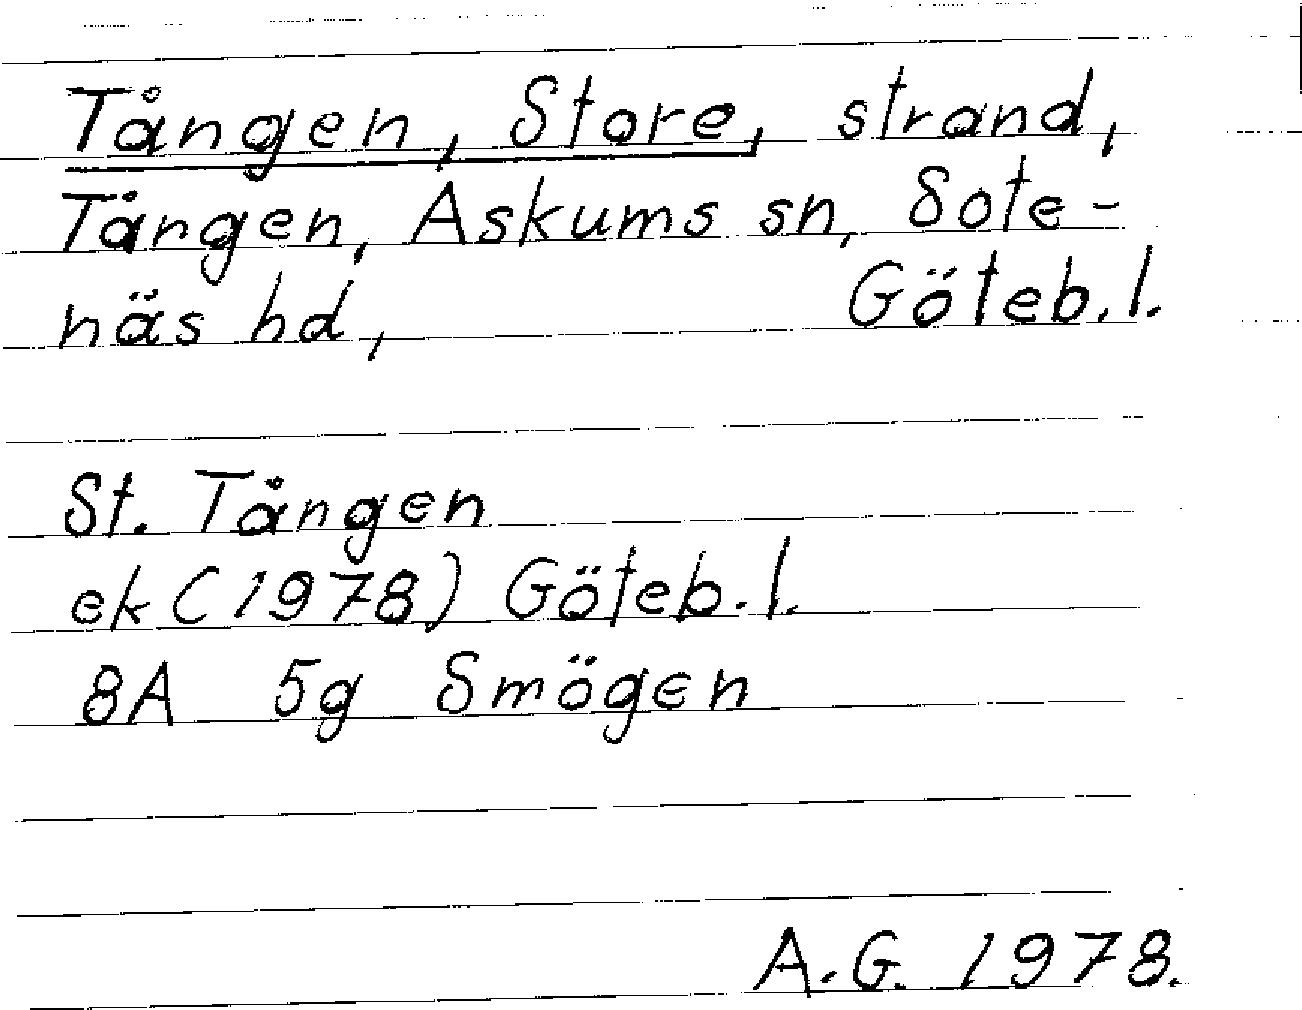 Tången, Store, strand,
Tången, Askums sn, Sote-
näs hd, Göteb. l.
St. Tången
ek (1978) Göteb. l.
8A 5g Smögen
A.G. 1978.